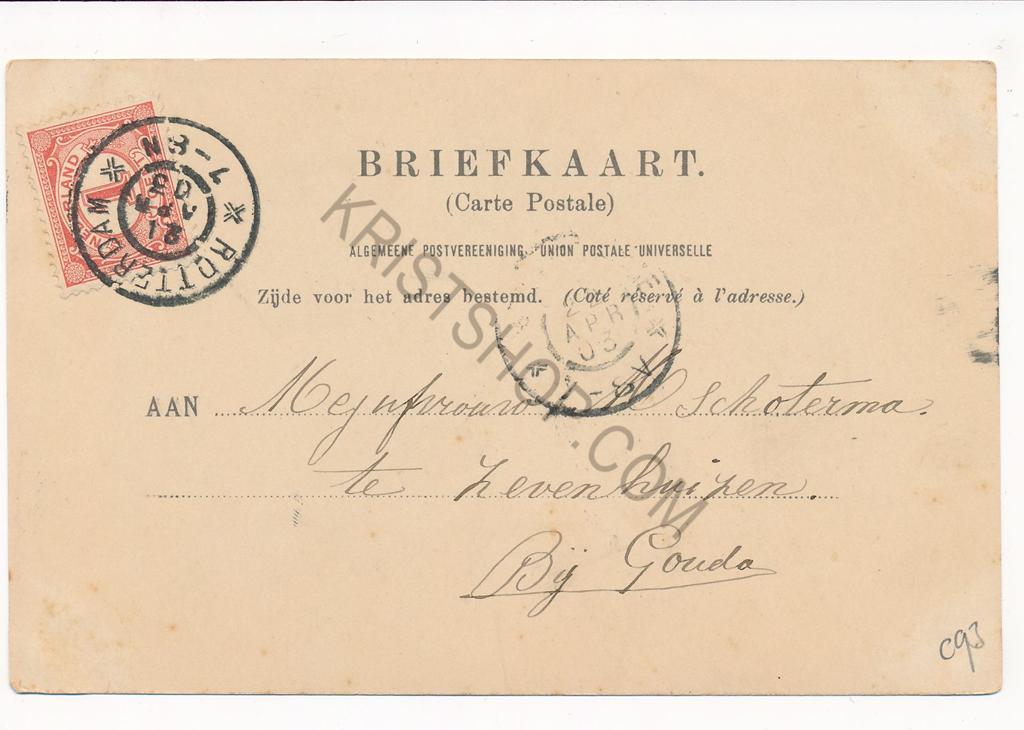 BRIEFKAART.
(Carte Postale)
ALGEMEENE POSTVEREENIGING UNION POSTALE UNIVERSELLE
Zijde voor het adres bestemd. (Coté réservé à l'adresse.)
AAN Mejufvrouw Schoterma.
te Zevenhuizen.
Bij Gouda
c93
ROTTERDAM
7-8N
21
APR
03
22
APR
03
KRISTSHOP.COM